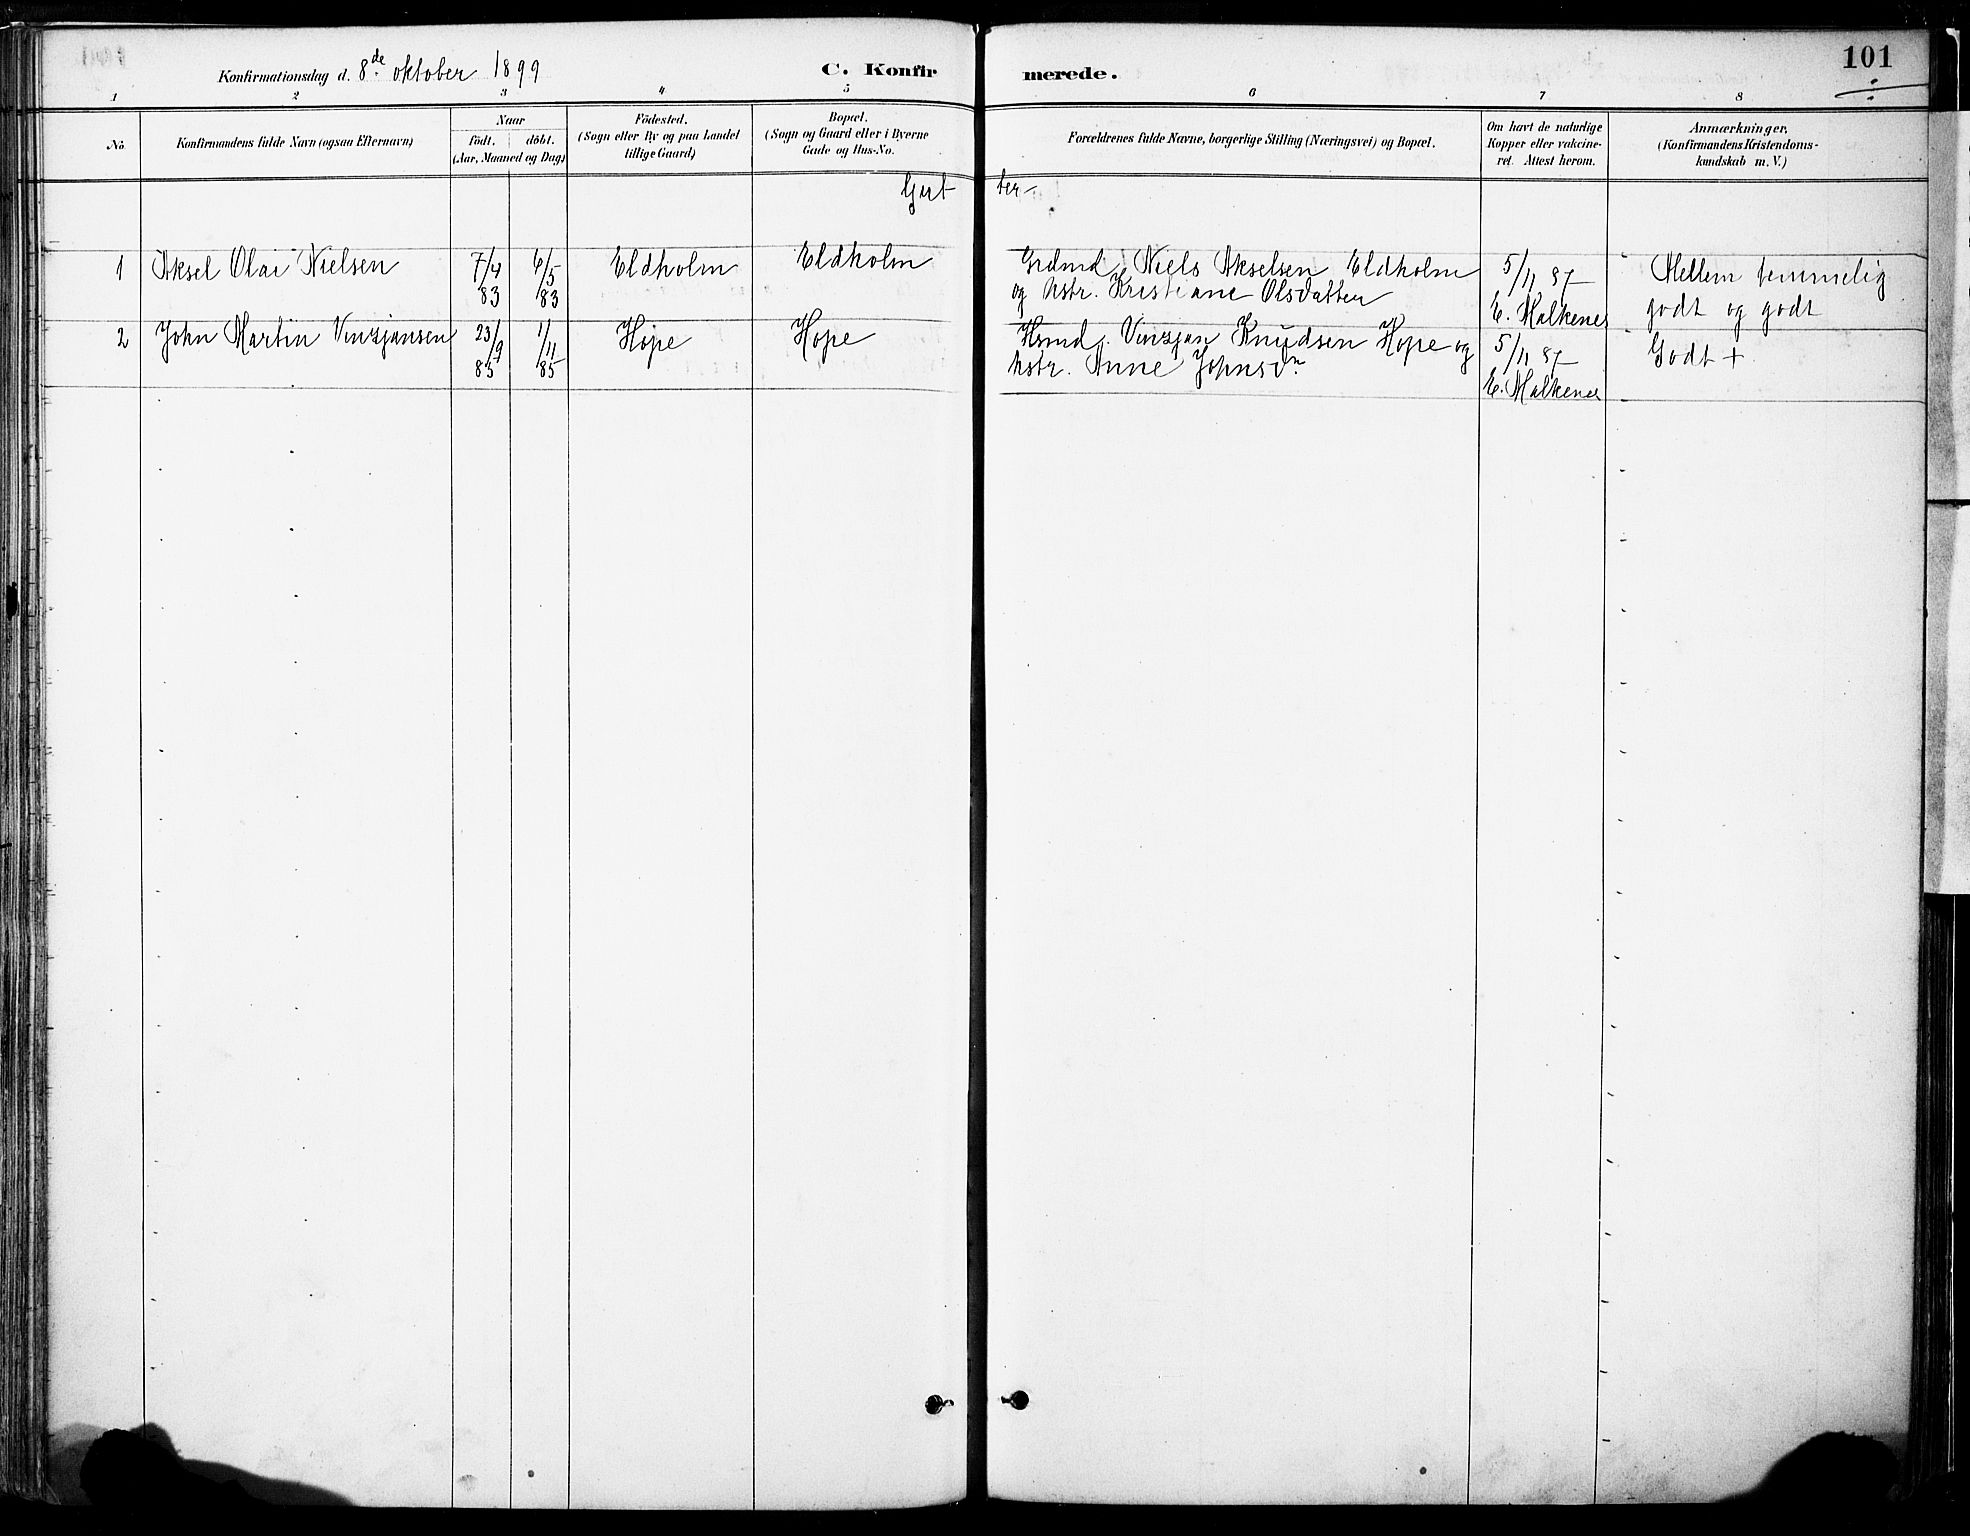 101
Konfirmationsdag d. 8de oktober 1899
C. Konfir merede.
1 2 3 4 5 6 7 8
No.
Konfirmandens fulde Navn (ogsaa Efternavn)
Naar
födt. döbt.
(Aar, Maaned og Dag)
Födested.
(Sogn eller By og paa Landet
tillige Gaard)
Bopæl.
(Sogn og Gaard eller i Byerne
Gade og Hus-No.
Forældrenes fulde Navne, borgerlige Stilling (Næringsvei) og Bopæl.
Om havt de naturlige
Kopper eller vakcine-
ret. Attest herom.
Anmærkninger,
(Konfirmandens Kristendoms-
kundskab m. V.)
Gut ter
1 Aksel Olai Nielsen 7/4 83 6/5 83 Eldholm Eldholm Grdmd. Niels Akselsen Eldholm
og Hstr. Kristiane Olsdatter
5/11 87
E. Malkenes
Mellem temmelig
godt og godt
2 John Martin Vinsjansen 23/9 85 1/11 85 Hope Hope Hsmd. Vinsjan Knudsen Hope og
Hstr. Anne Johnsdn.
5/11 87
E. Malkenes
Godt +